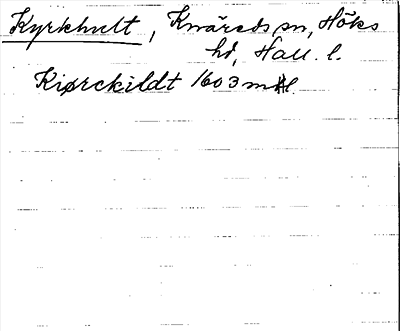 Kyrkhult, Knäreds sn, Höks
hd, Hall. l.
Kiørckildt 1603 mtl